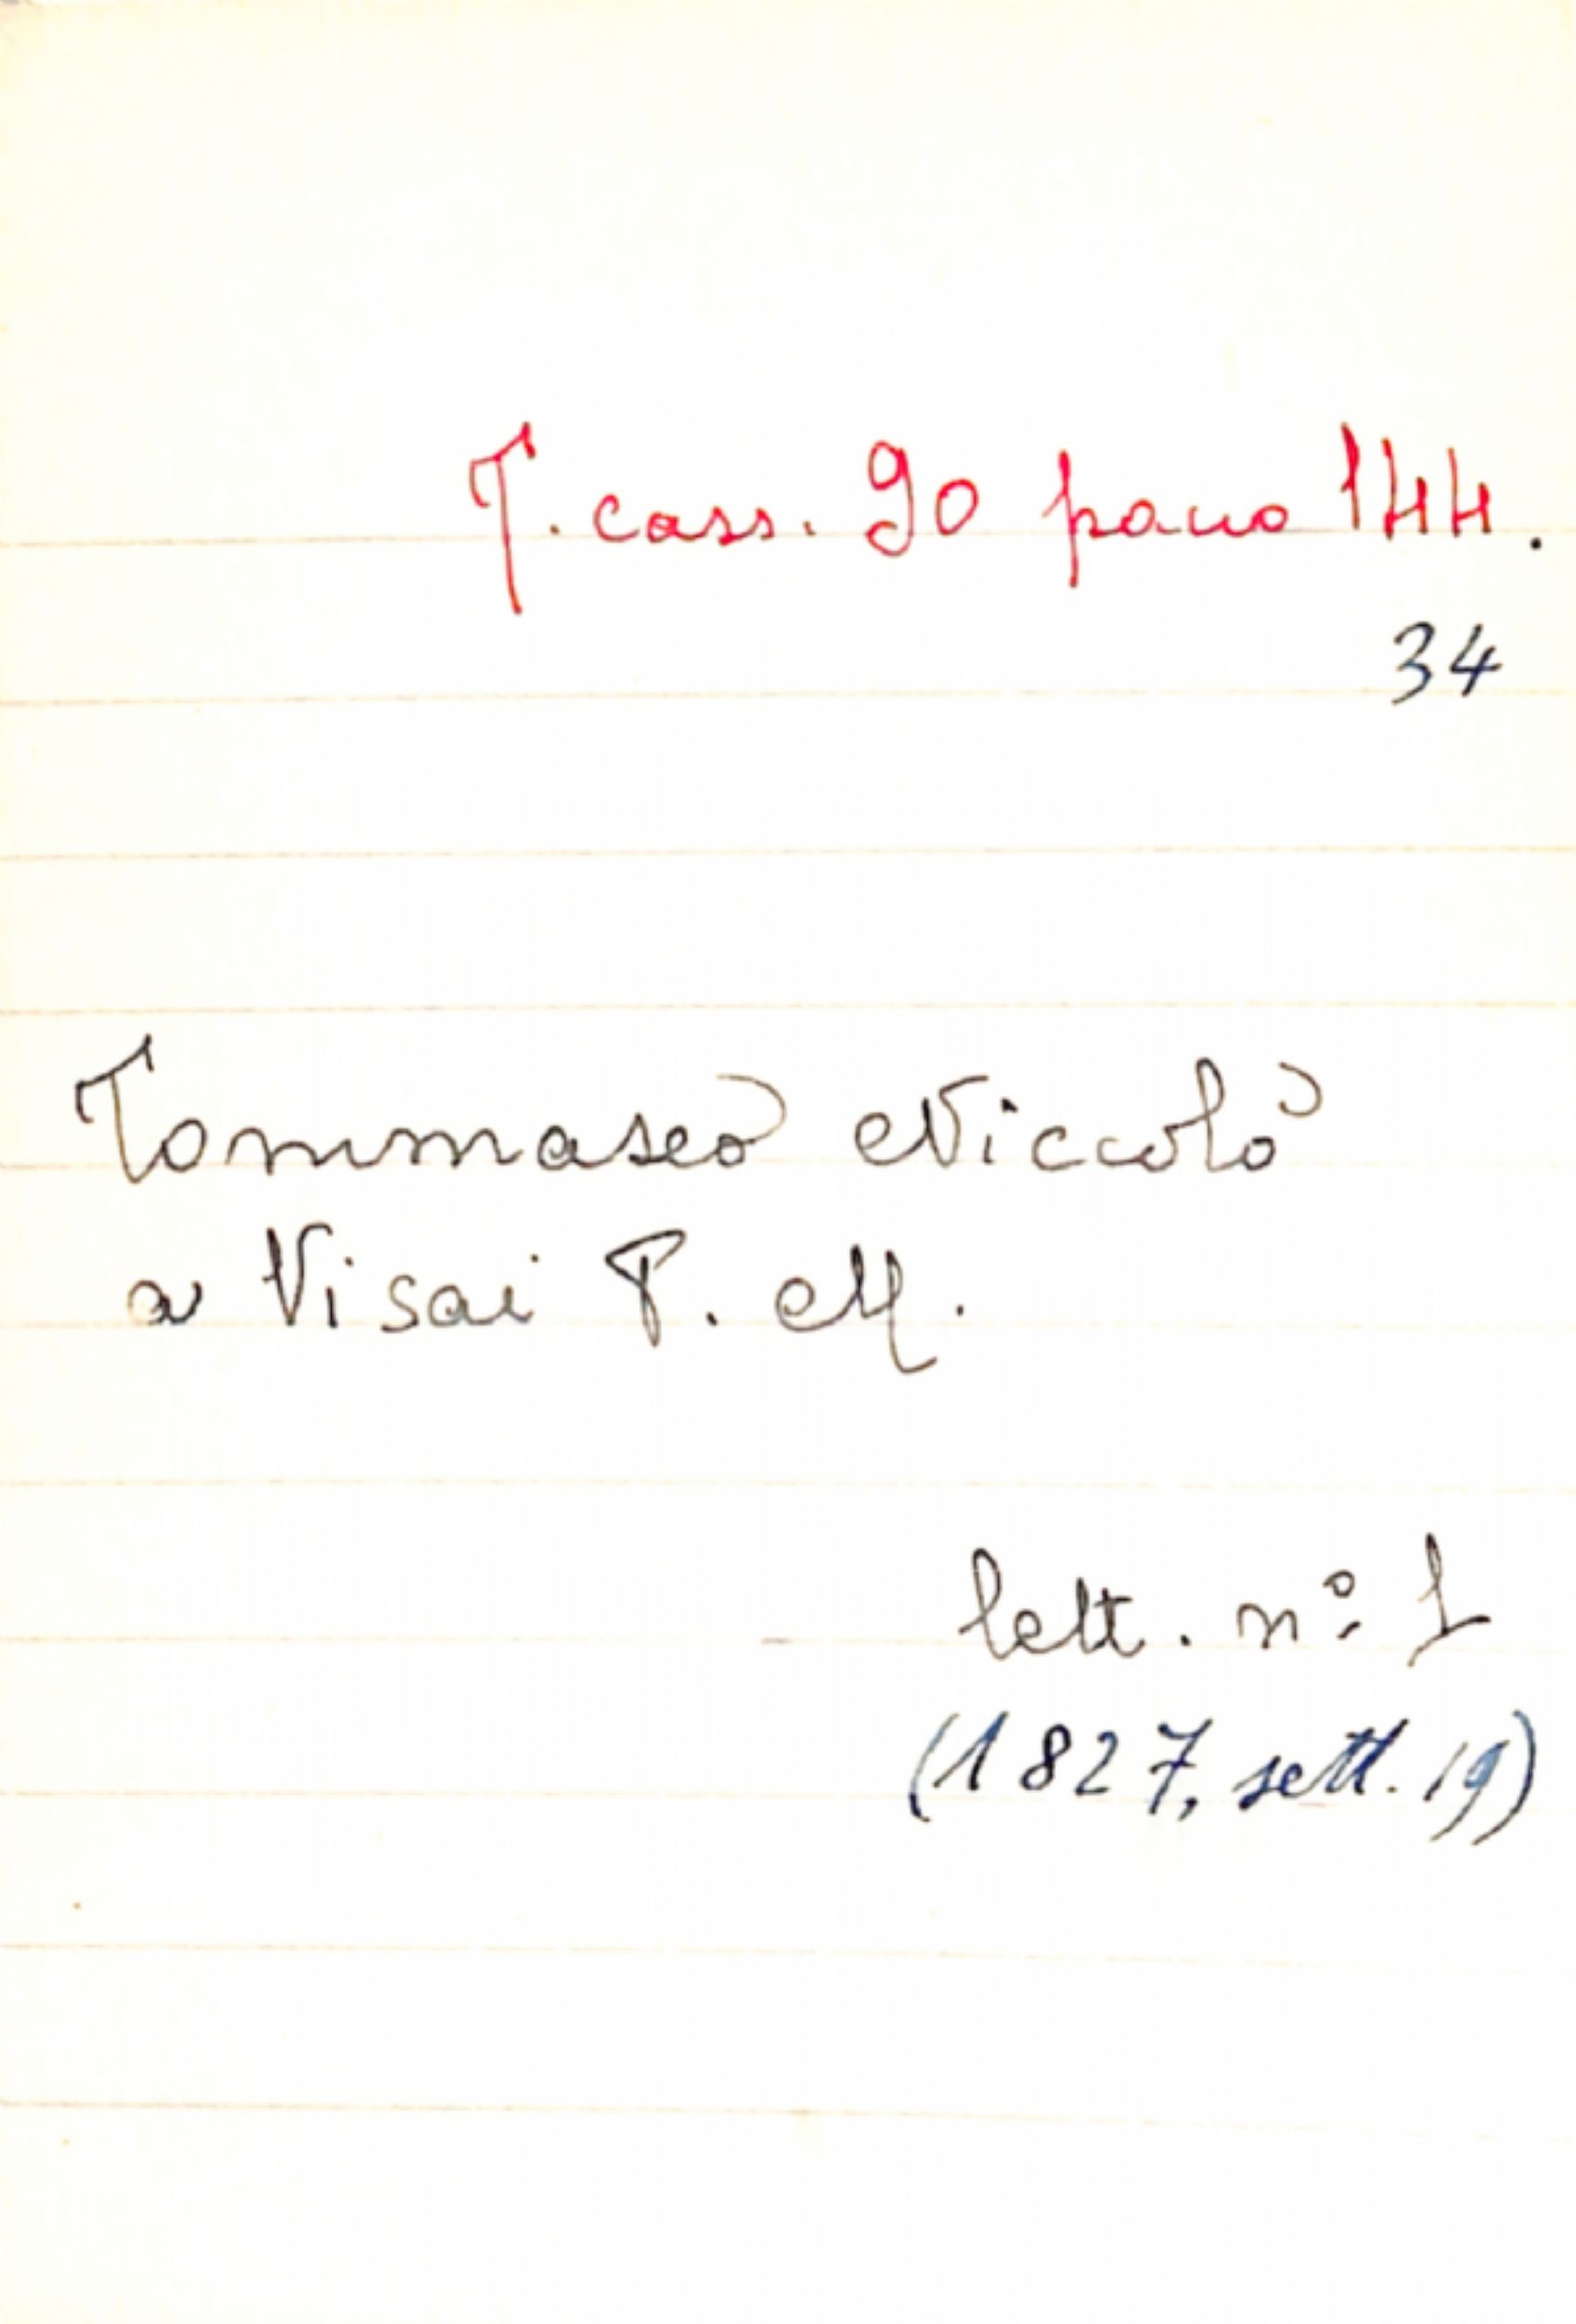 T. cass. 90 pacco 144.
34
Tommaseo Niccolò
a Visai P. M.
lett. nº 1
(1827, sett. 19)